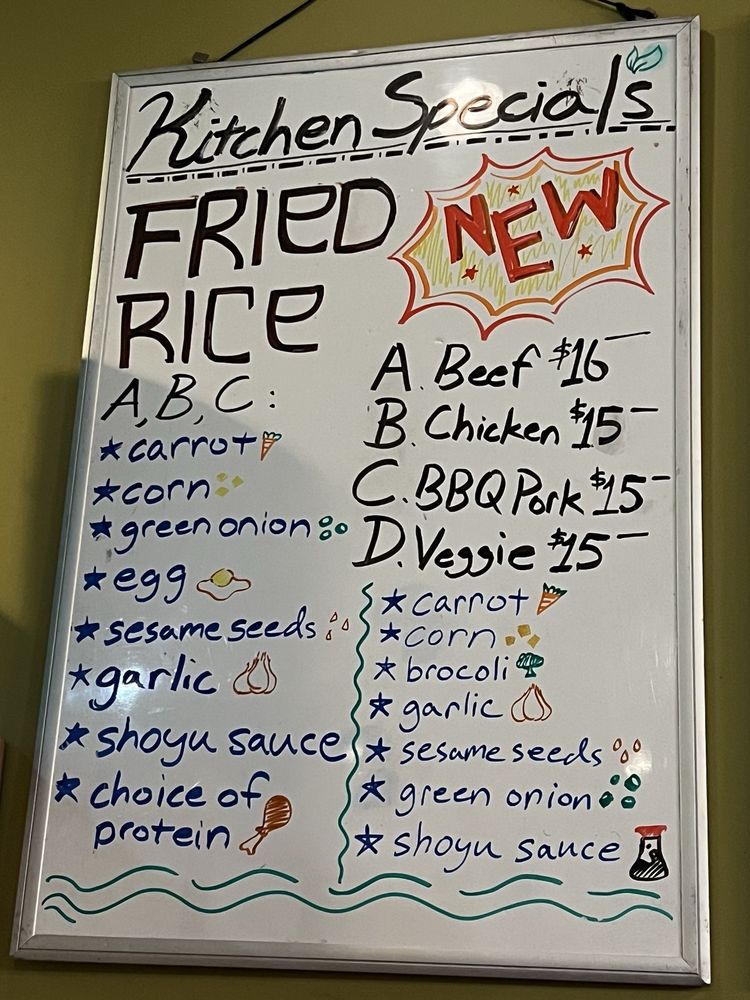 Kitchen Specials
FRIED
RICE
NEW
A. Beef $16
B. Chicken $15
C. BBQ Pork $15
D. Veggie $15
A, B, C:
carrot
corn
green onion
egg
sesame seeds
garlic
shoyu sauce
choice of
protein
carrot
corn
brocoli
garlic
sesame seeds
green onion
shoyu sauce